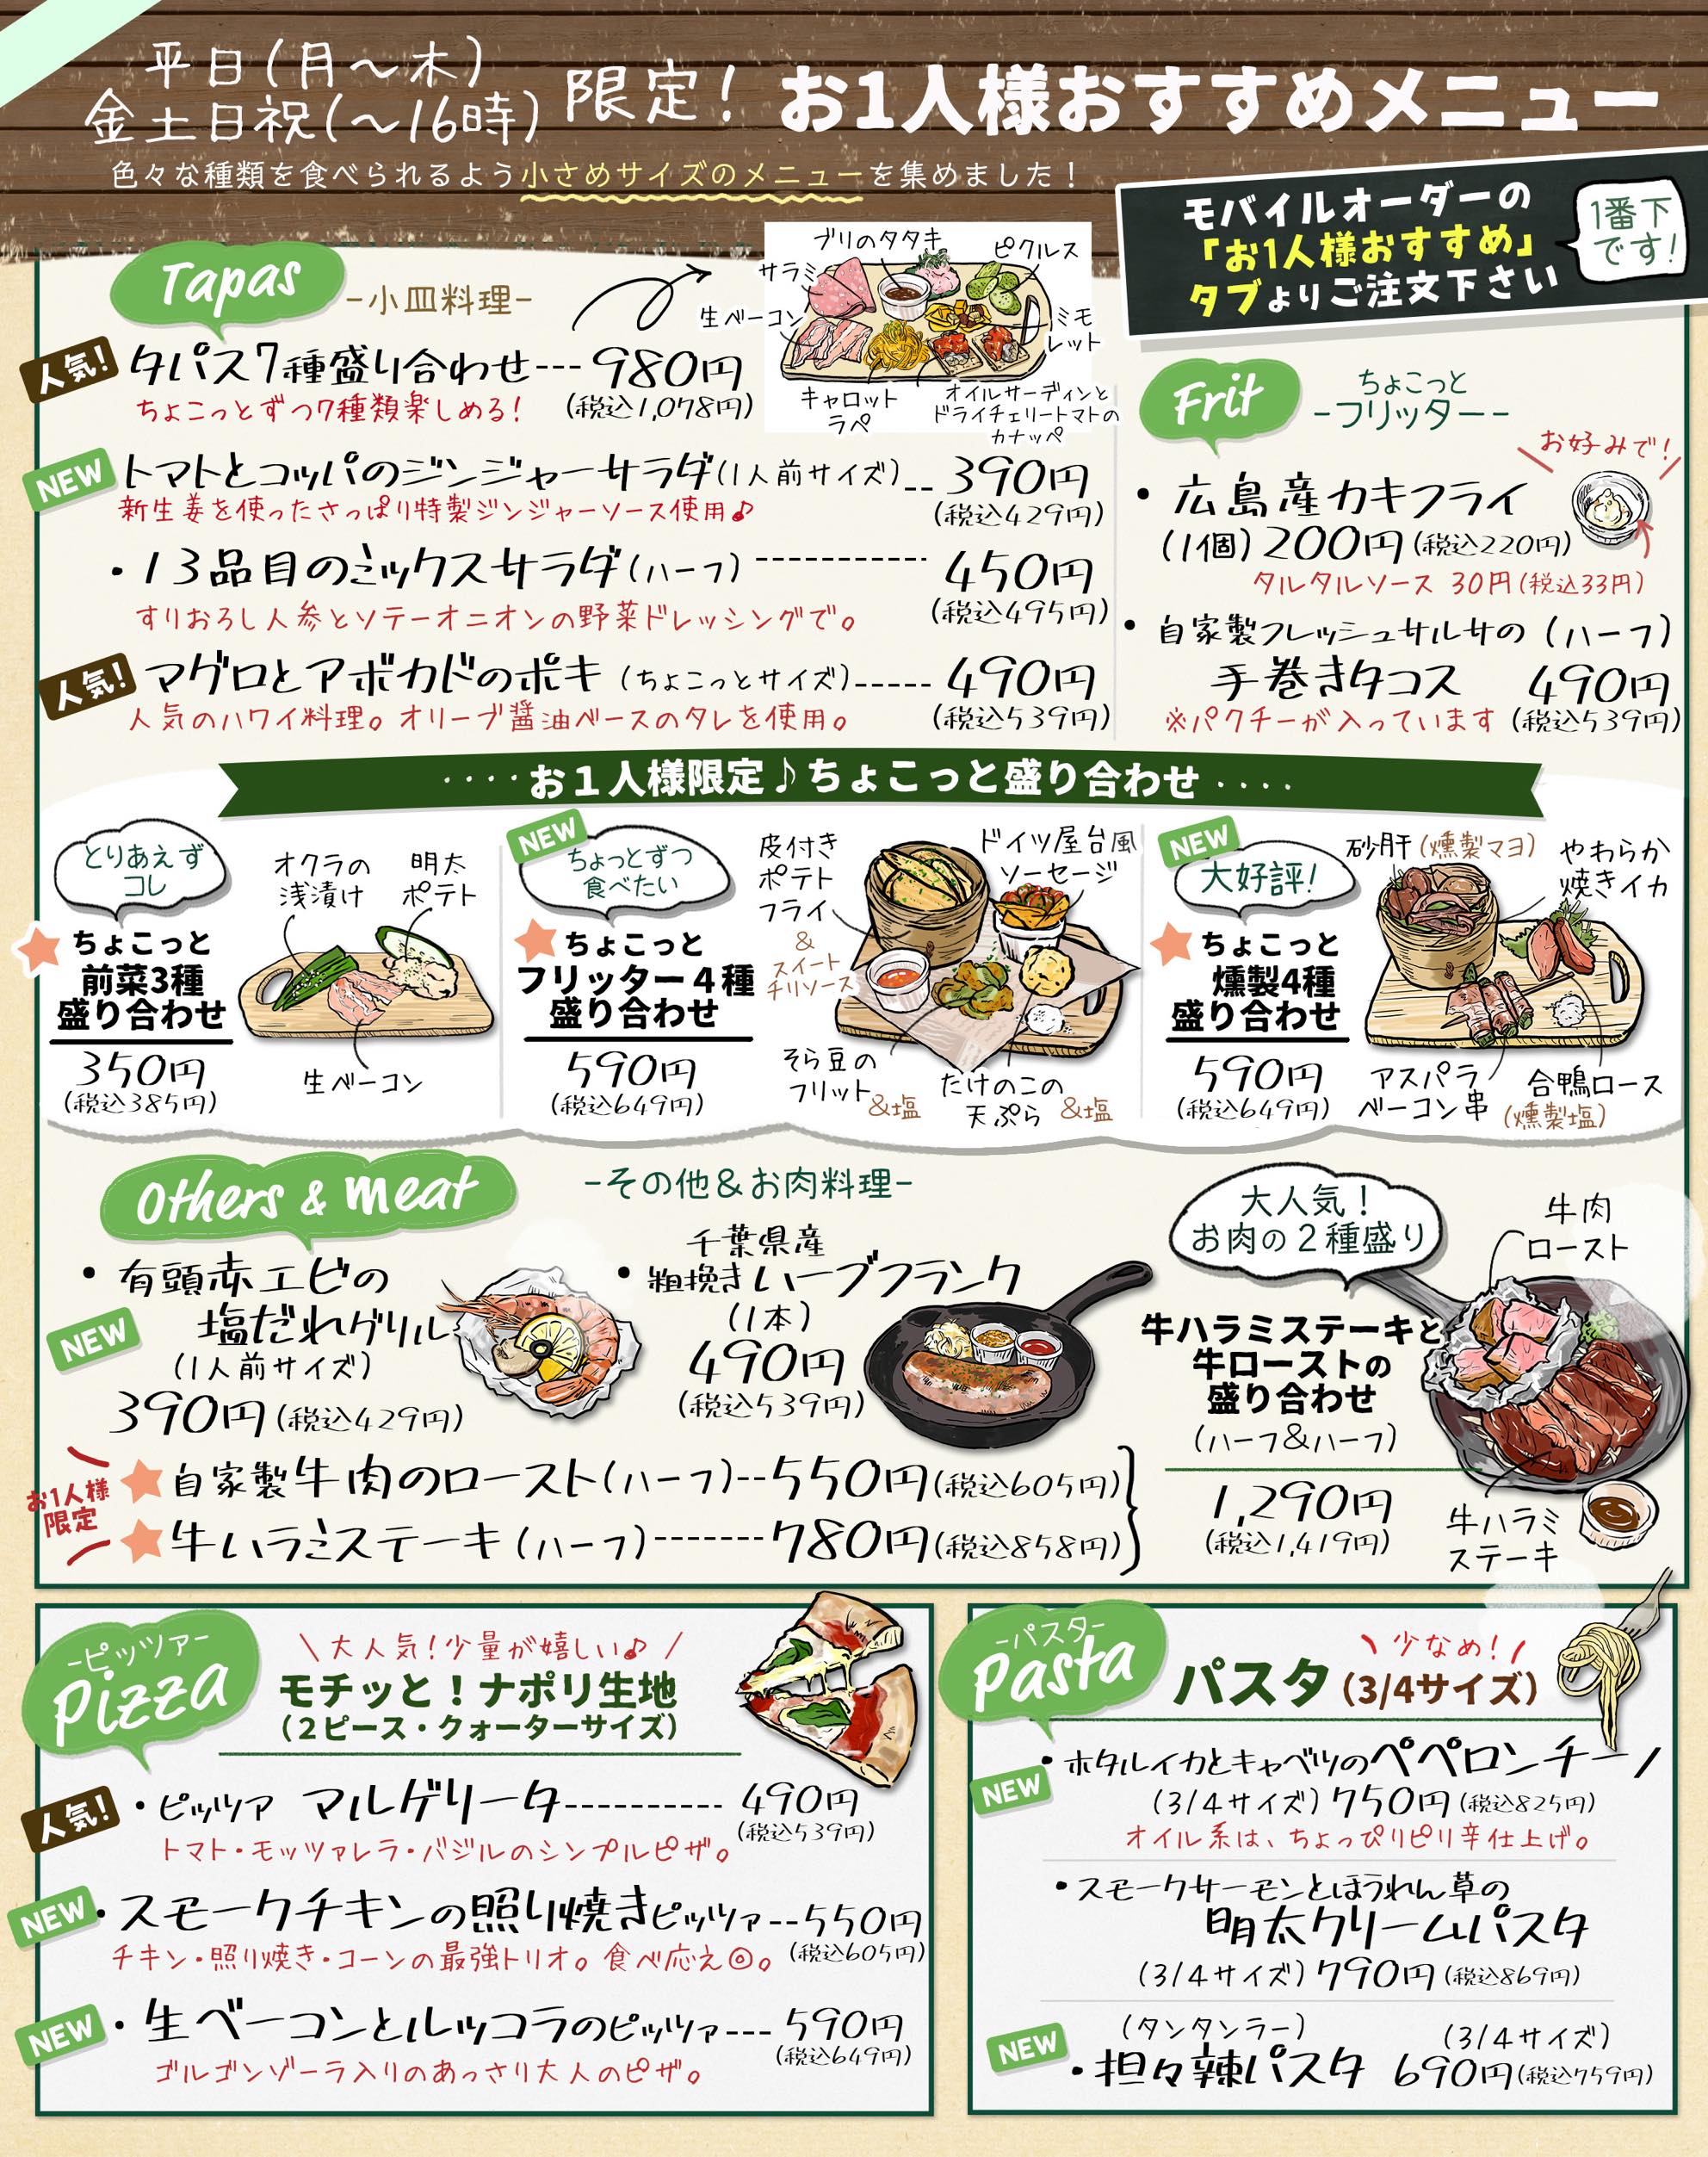 平日(月〜木)
金土日祝(〜16時)
限定! お1人様おすすめメニュー
色々な種類を食べられるよう小さめサイズのメニューを集めました！
モバイルオーダーの
「お1人様おすすめ」
タブよりご注文下さい
1番下
です!
Tapas
-小皿料理-
ブリのタタキ
ピクルス
サラミ
生ベーコン
ミモ
レット
キャロット
ラペ
オイルサーディンと
ドライチェリートマトの
カナッペ
人気! タパス7種盛り合わせ---980円
ちょこっとずつ7種類楽しめる! (税込1,078円)
NEW トマトとコッパのジンジャーサラダ(1人前サイズ)--390円
新生姜を使ったさっぱり特製ジンジャーソース使用♪ (税込429円)
・13品目のミックスサラダ(ハーフ)----------450円
すりおろし人参とソテーオニオンの野菜ドレッシングで。 (税込495円)
人気! マグロとアボカドのポキ(ちょこっとサイズ)-----490円
人気のハワイ料理。オリーブ醤油ベースのタレを使用。 (税込539円)
Frit
ちょこっと
-フリッター-
お好みで!
・広島産カキフライ
(1個)200円(税込220円)
タルタルソース 30円(税込33円)
・自家製フレッシュサルサの(ハーフ)
手巻きタコス 490円
※パクチーが入っています (税込539円)
····お１人様限定♪ちょこっと盛り合わせ····
とりあえず
コレ
ちょこっと
前菜3種
盛り合わせ
350円
(税込385円)
オクラの
浅漬け
明太
ポテト
生ベーコン
NEW
ちょっとずつ
食べたい
ちょこっと
フリッター４種
盛り合わせ
590円
(税込649円)
皮付き
ポテト
フライ
&
スイート
チリソース
ドイツ屋台風
ソーセージ
そら豆の
フリット&塩
たけのこの
天ぷら &塩
NEW
大好評!
ちょこっと
燻製4種
盛り合わせ
590円
(税込649円)
砂肝(燻製マヨ)
やわらか
焼きイカ
アスパラ
ベーコン串
合鴨ロース
(燻製塩)
Others & meat
-その他＆お肉料理-
・有頭赤エビの
NEW 塩だれグリル
(1人前サイズ)
390円(税込429円)
千葉県産
・粗挽きハーブフランク
(1本)
490円
(税込539円)
お1人様
限定
自家製牛肉のロースト(ハーフ)--550円(税込605円)
牛ハラミステーキ(ハーフ)------780円(税込858円)
大人気！
お肉の２種盛り
牛ハラミステーキと
牛ローストの
盛り合わせ
(ハーフ&ハーフ)
1,290円
(税込1,419円)
牛肉
ロースト
牛ハラミ
ステーキ
-ピッツァ-
Pizza
\大人気!少量が嬉しい♪/
モチッと！ナポリ生地
（２ピース・クォーターサイズ）
人気! ・ピッツァ マルゲリータ---------- 490円
トマト・モッツァレラ・バジルのシンプルピザ。 (税込539円)
NEW ・スモークチキンの照り焼きピッツァ--550円
チキン・照り焼き・コーンの最強トリオ。食べ応え◎。 (税込605円)
NEW ・生ベーコンとルッコラのピッツァ---590円
ゴルゴンゾーラ入りのあっさり大人のピザ。 (税込649円)
-パスタ-
Pasta
\少なめ!/
パスタ（3/4サイズ）
・ホタルイカとキャベツのペペロンチーノ
NEW (3/4サイズ)750円(税込825円)
オイル系は、ちょっぴりピリ辛仕上げ。
・スモークサーモンとほうれん草の
明太クリームパスタ
(3/4サイズ)790円(税込869円)
(タンタンラー) (3/4サイズ)
NEW ・担々辣パスタ 690円(税込759円)